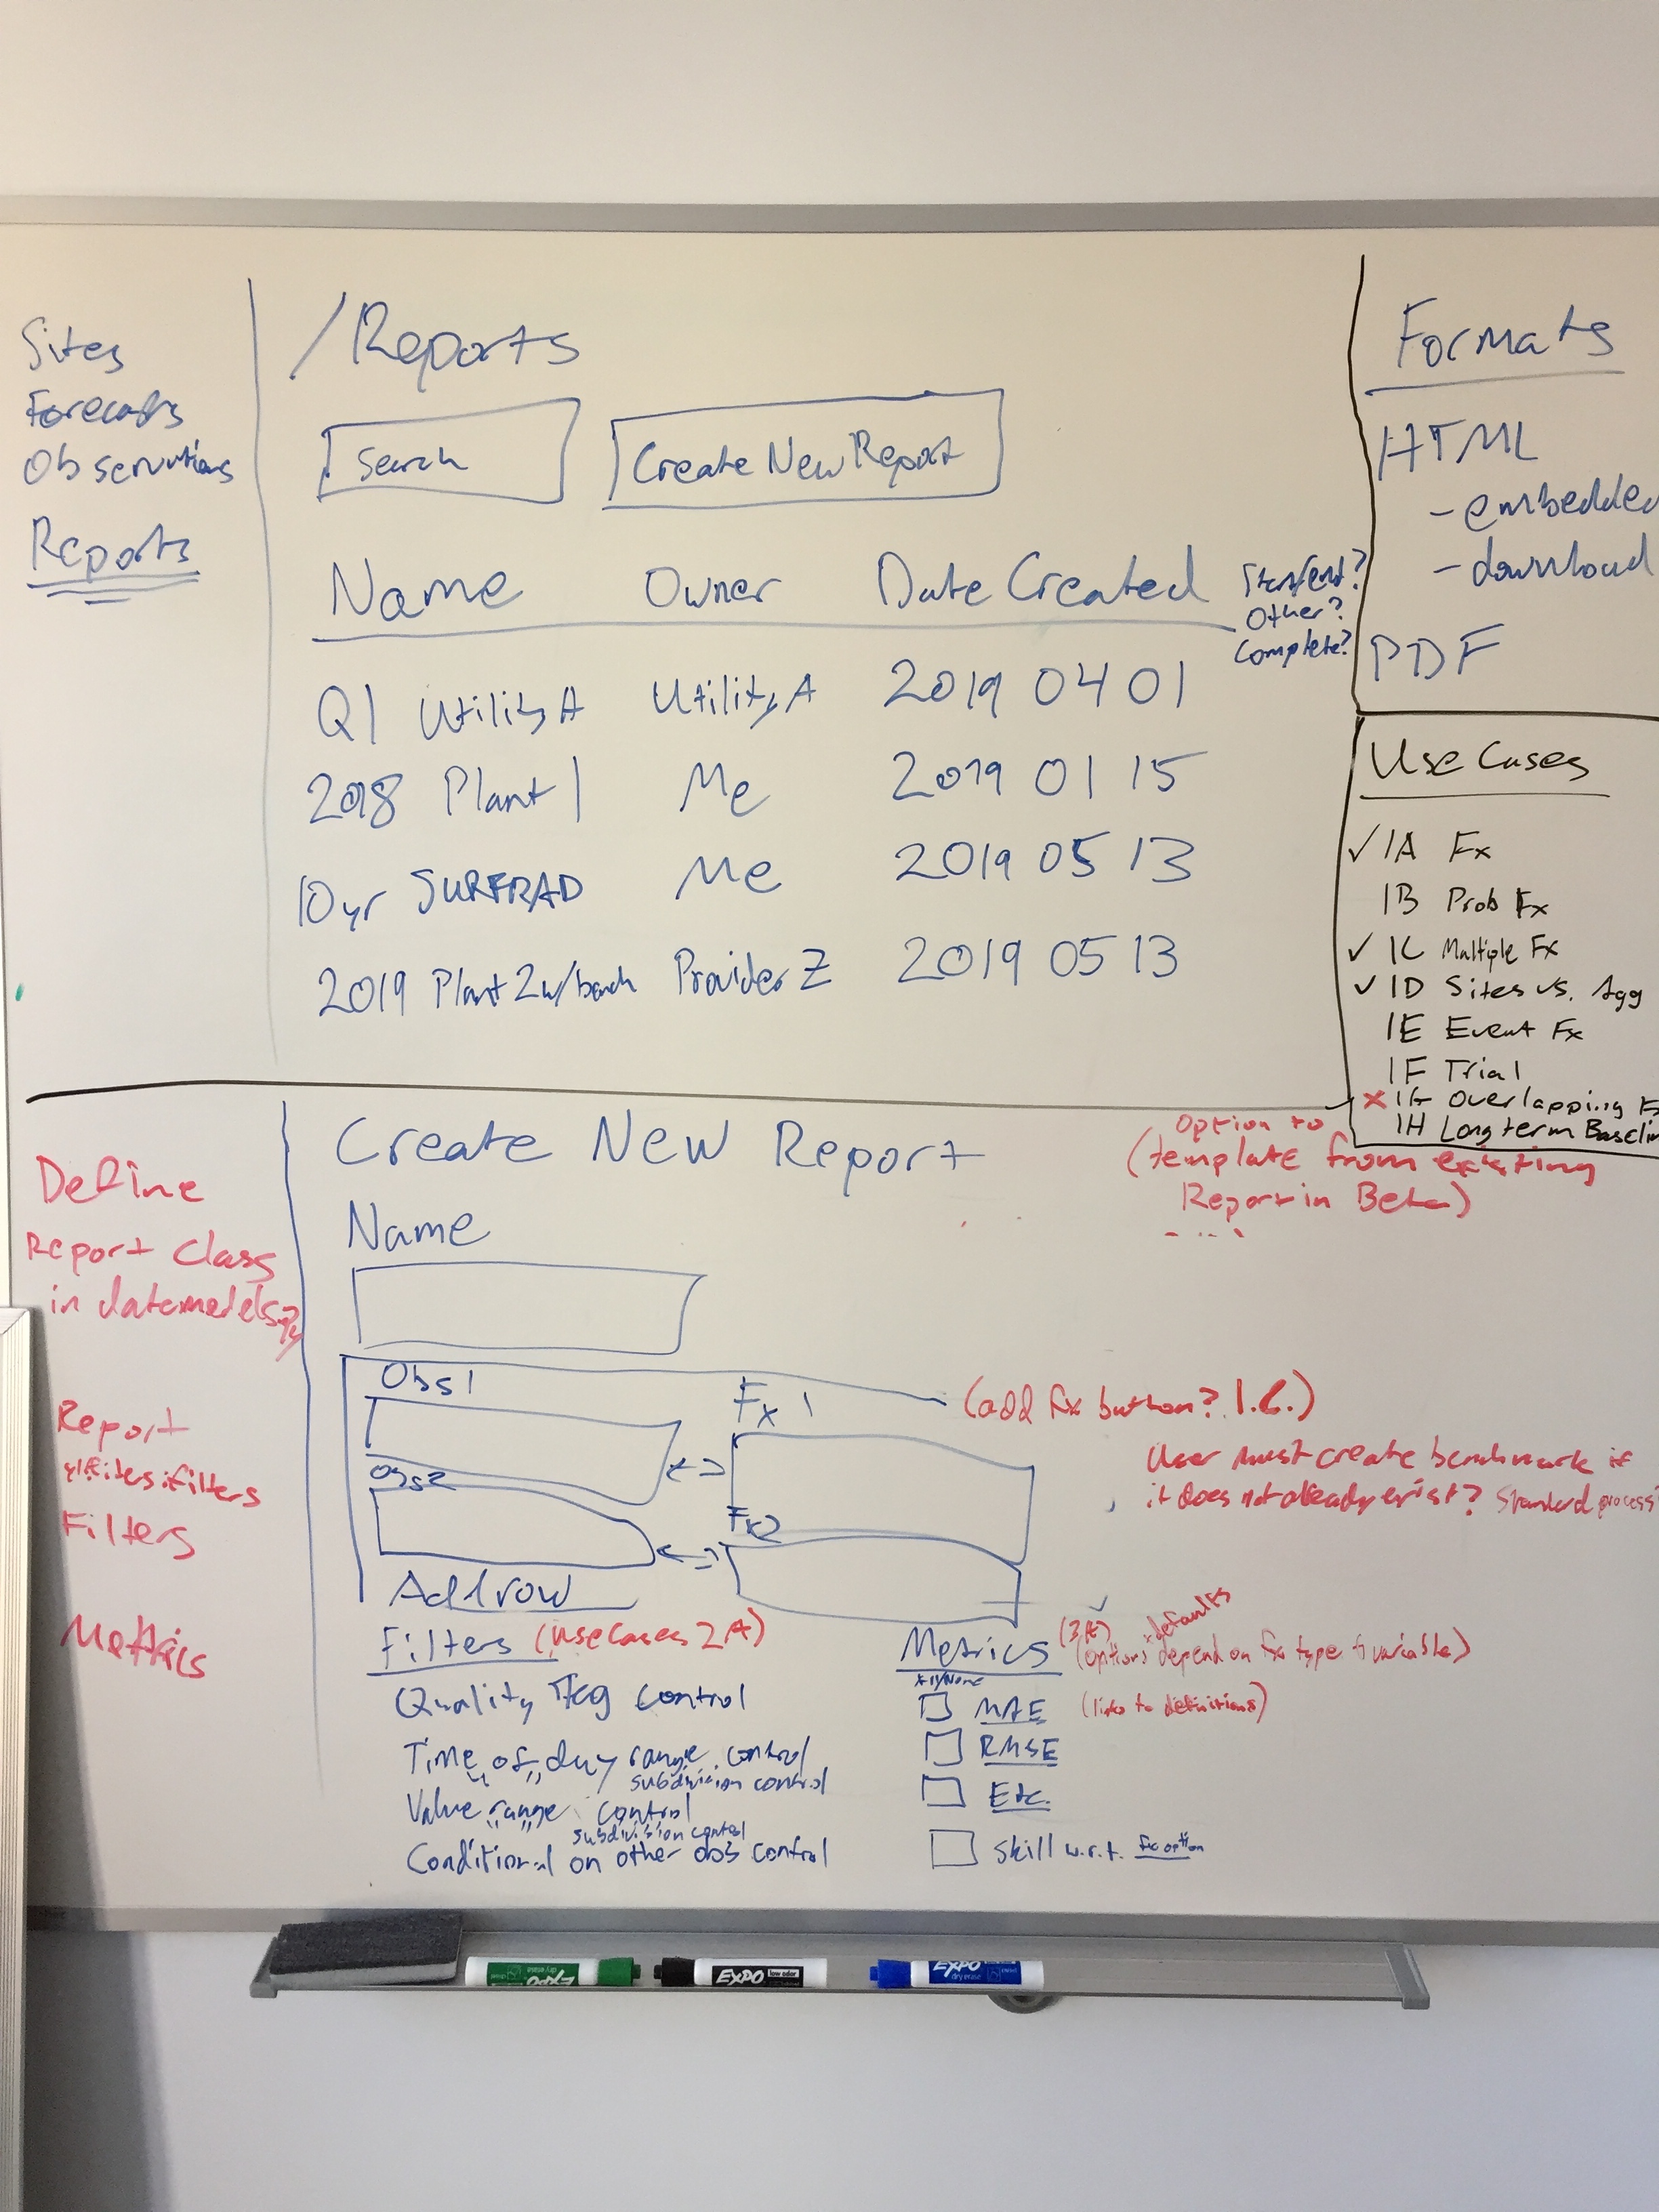 Sites
Forecasts
Observations
Reports
/Reports
Search
Create New Report
Name Owner Date Created
Start/end?
Other?
Complete?
Q1 Utility A Utility A 2019 04 01
2018 Plant 1 Me 2019 01 15
10yr SURFRAD Me 2019 05 13
2019 Plant 2 w/bench Provider Z 2019 05 13
Formats
HTML
- embedded
- download
PDF
Use Cases
✓ 1A Fx
1B Prob Fx
✓ 1C Multiple Fx
✓ 1D Sites vs. Agg
1E Event Fx
1F Trial
✗ 1G Overlapping F
1H Long term Baselin
Define
Report Class
in datamodels.py
Report
Filters
Metrics
Create New Report
option to
(template from existing
Report in Beta)
Name
Obs1
Fx 1
(add fx button? 1.C.)
Obs2
Fx2
User must create benchmark if
it does not already exist? Standard process
Add row
Filters (use cases 2A)
Quality Flag control
Time of day range control
subdivision control
Value range control
subdivision control
Conditional on other obs control
Metrics
(3A)
+defaults
(options depend on fx type & variable)
All/None
MAE (links to definitions)
RMSE
Etc.
skill w.r.t. fx option
EXPO
dry erase
EXPO low odor
EXPO
dry erase